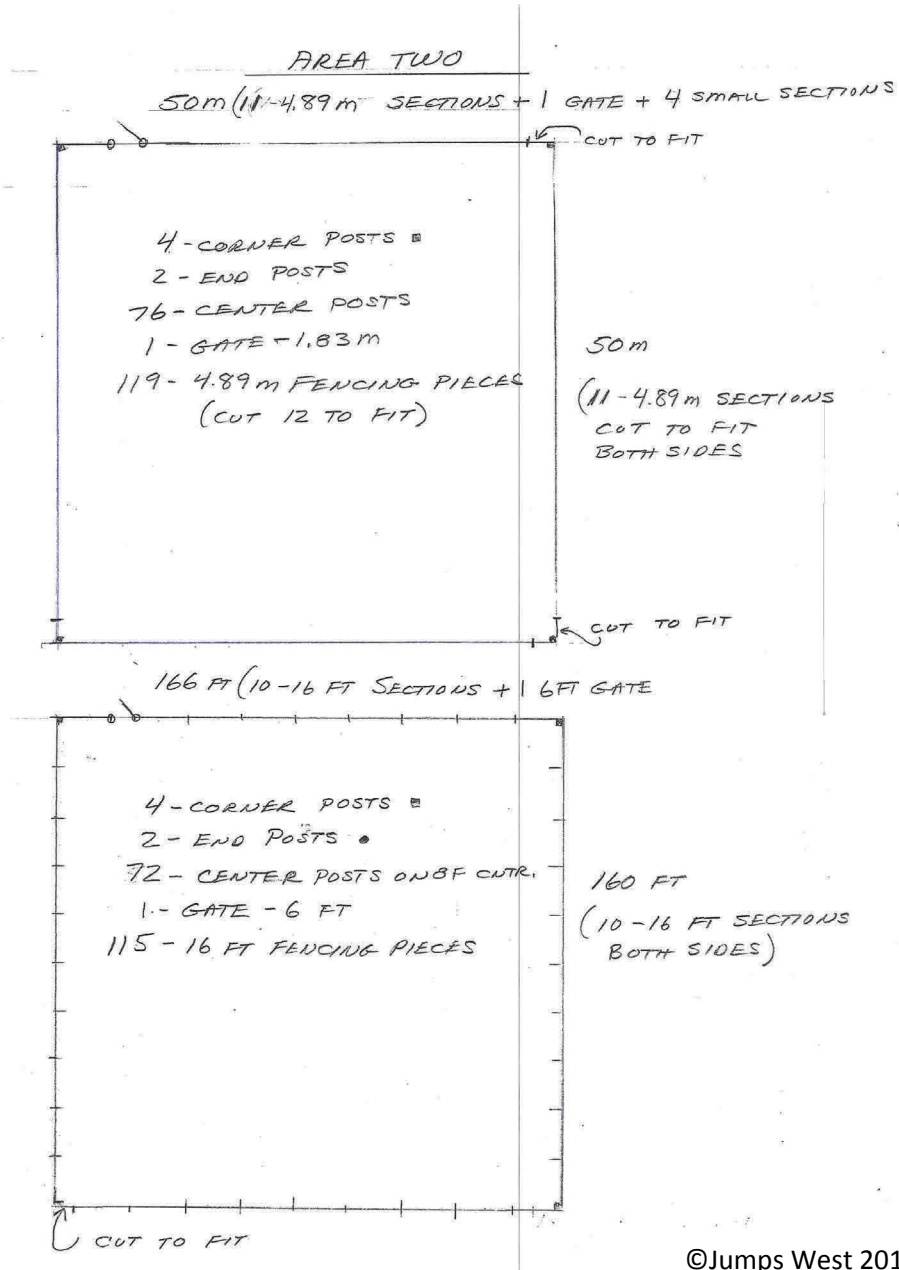 AREA TWO
50m (11-4.89m SECTIONS + 1 GATE + 4 SMALL SECTIONS
CUT TO FIT
4-CORNER POSTS
2 - END POSTS
76-CENTER POSTS
1 - GATE - 1.83m
119- 4.89m FENCING PIECES
(CUT 12 TO FIT)
50m
(11-4.89m SECTIONS
CUT TO FIT
BOTH SIDES
CUT TO FIT
166 FT (10-16 FT SECTIONS + 1 6FT GATE
4-CORNER POSTS
2- END POSTS
72- CENTER POSTS ON 8F CNTR.
1.- GATE - 6 FT
115-16 FT FENCING PIECES
160 FT
(10-16 FT SECTIONS
BOTH SIDES)
CUT TO FIT
©Jumps West 201